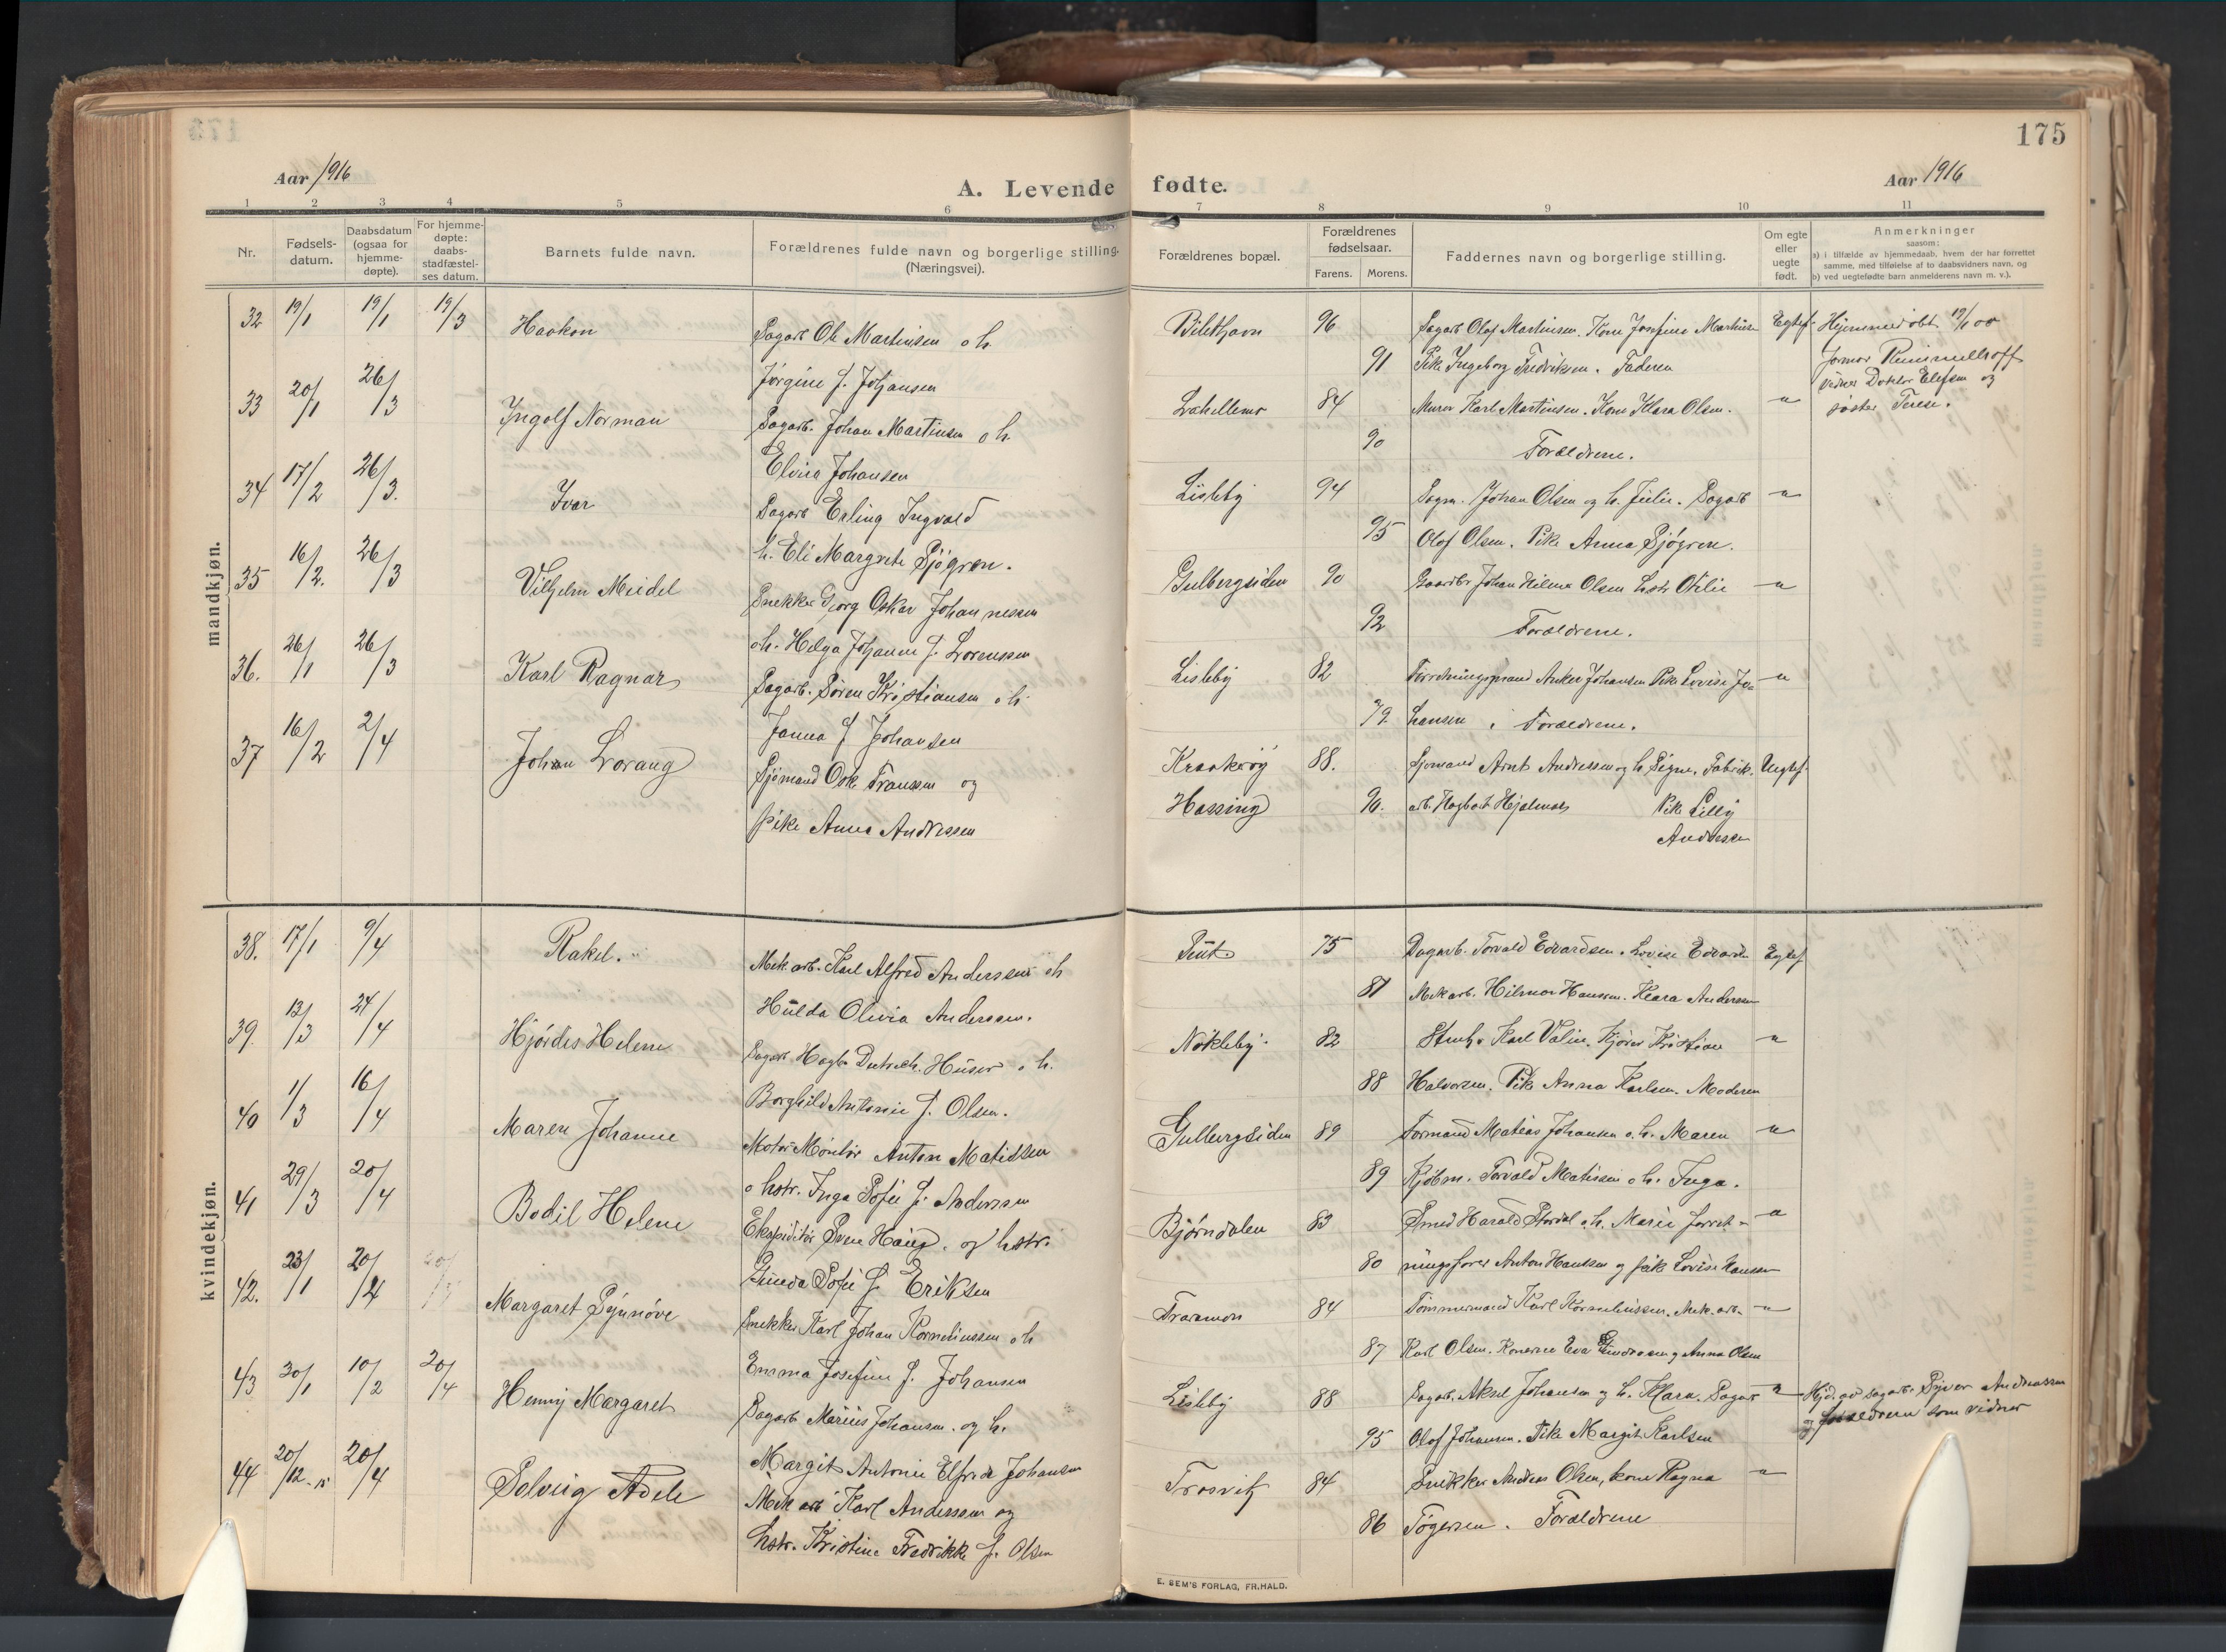 175
Aar 1916
A. Levende fødte.
Aar 1916
1 2 3 4 5 6 7 8 9 10 11
Nr.
Fødsels-
datum.
Daabsdatum
(ogsaa for
hjemme-
døpte).
For hjemme-
døpte:
daabs-
stadfæstel-
ses datum.
Barnets fulde navn.
Forældrenes fulde navn og borgerlige stilling.
(Næringsvei).
Forældrenes bopæl.
Forældrenes
fødselsaar.
Farens. Morens.
Faddernes navn og borgerlige stilling.
Om egte
eller
uegte
født.
Anmerkninger
saasom:
a) i tilfælde av hjemmedaab, hvem der har forrettet
samme, med tilføielse af to daabsvidners navn, og
b) ved uegtefødte barn anmelderens navn m. v.).
mandkjøn.
32 19/1 19/1 19/3 Haakon Sagarb Ole Martinsen o h. 96 Sagarb Olaf Martinsen. Kone Josefine Martinsen Egtef. Hjemmedøbt 19/1 av
Jørgine f. Johansen 91 Pike Ingeborg Fredriksen. Faderen Jormor
vidner Doktor Elefsen og
søster Terese.
33 20/1 26/3 Ingolf Norman Sagarb. Johan Martinsen o h. Lahellemo 84 Murer Karl Martinsen. Kone Klara Olsen. - " -
Elvira Johansen 90 Forældrene.
34 17/2 26/3. Ivar Sagarb Erling Ingvald Lisleby 94 Sagm. Johan Olsen og h. Julie. Sagarb - " -
h. Eli Margrete Sjøgren. 95 Olaf Olsen. Pike Anna Sjøgren.
35 16/2. 26/3 Vilhelm Meidel Snekker Georg Oskar Johannessen Gulbergsiden 90 Gaardbr Johan Hilmar Olsen hstr Otilie - " -
o h. Helga Johanne f. Lorenssen 92 Forældrene.
36. 26/1 26/3 Karl Ragnar Sagarb. Søren Kristiansen o h. Lisleby 82 Forretningsmand Anker Johansen Pike Lovise Jo= - " -
Janna f Johansen 79 hansen. Forældrene.
37 16/2 2/4 Johan Lorang Sjømand Osk Fransen og Kraakerøy 88. Sjømand Arnt Andressen og h. Signe. Fabrik. Uegtef.
pike Anna Andressen Hassing 90. arb. Hagbart Hjelmaas Pike Lilly
Andressen
kvindekjøn.
38. 17/1 9/4 Rakel. Mek arb. Karl Alfred Anderssen oh Sut 75 Dagarb. Torvald Edvardsen. Lovise Edvards. Egtef
Hulda Olivia Anderssen. 81 Mek arb. Hilmar Hanssen. Klara Anderssen
39. 13/3 24/4 Hjørdis Helene Sagarb Hagb. Husør o h. Nøkleby. 82 Karl Valin. Kjører Kristian - " -
Borghild Antonie f. Olsen. 88 Halvorsen. Pike Anna Karlsen. Moderen
40 1/3 16/4 Maren Johanne Motor Montør Anton Matissen Gulbergsiden 89 Formand Matias Johansen o. h. Maren - " -
o hstr. Inga Sofie f. Anderssen 89 Kjøbm. Torvald Matissen o h. Inga.
41 29/3 20/4 Bodil Helene Ekspeditør Sven Haug. og hstr. Bjørndalen 83 Smed Harald Stordal o h. Marie forret- - " -
Gunda Sofie f. Eriksen 80 ningsfører Anton Hanssen og pik Lovise Hanssen
42. 23/1 20/4 20/4 Margaret Synnøve Snekker Karl Johan Korneliussen o h Traramoen 84 Tømmermand Karl Korneliussen. Mek. arb. - " -
Emma Josefine f. Johansen 87 Karl Olsen. Konerne Eva og Anna Olsen
43 30/1 10/2 20/4 Henny Margaret Sagarb Marius Johansen. og h. Lisleby 88 Sagarb. Aksel Johansen og h. Klara. Sagarb - " - Hjd. av sagarb. Syver Andreassen
Margit Antonie Elfride Johansen 95 Olaf Johansen. Pike Margit Karlsen og forældrene som vidner
44 20/12-15 20/4 Solveig Adele Mek arb Karl Anderssen og Trosvik 84 Snekker Andreas Olsen, kone Ragna - " -
hstr. Kristine Fredrikke f. Olsen 86 Tøgersen. Forældrene
E. SEM'S FORLAG, FR.HALD.